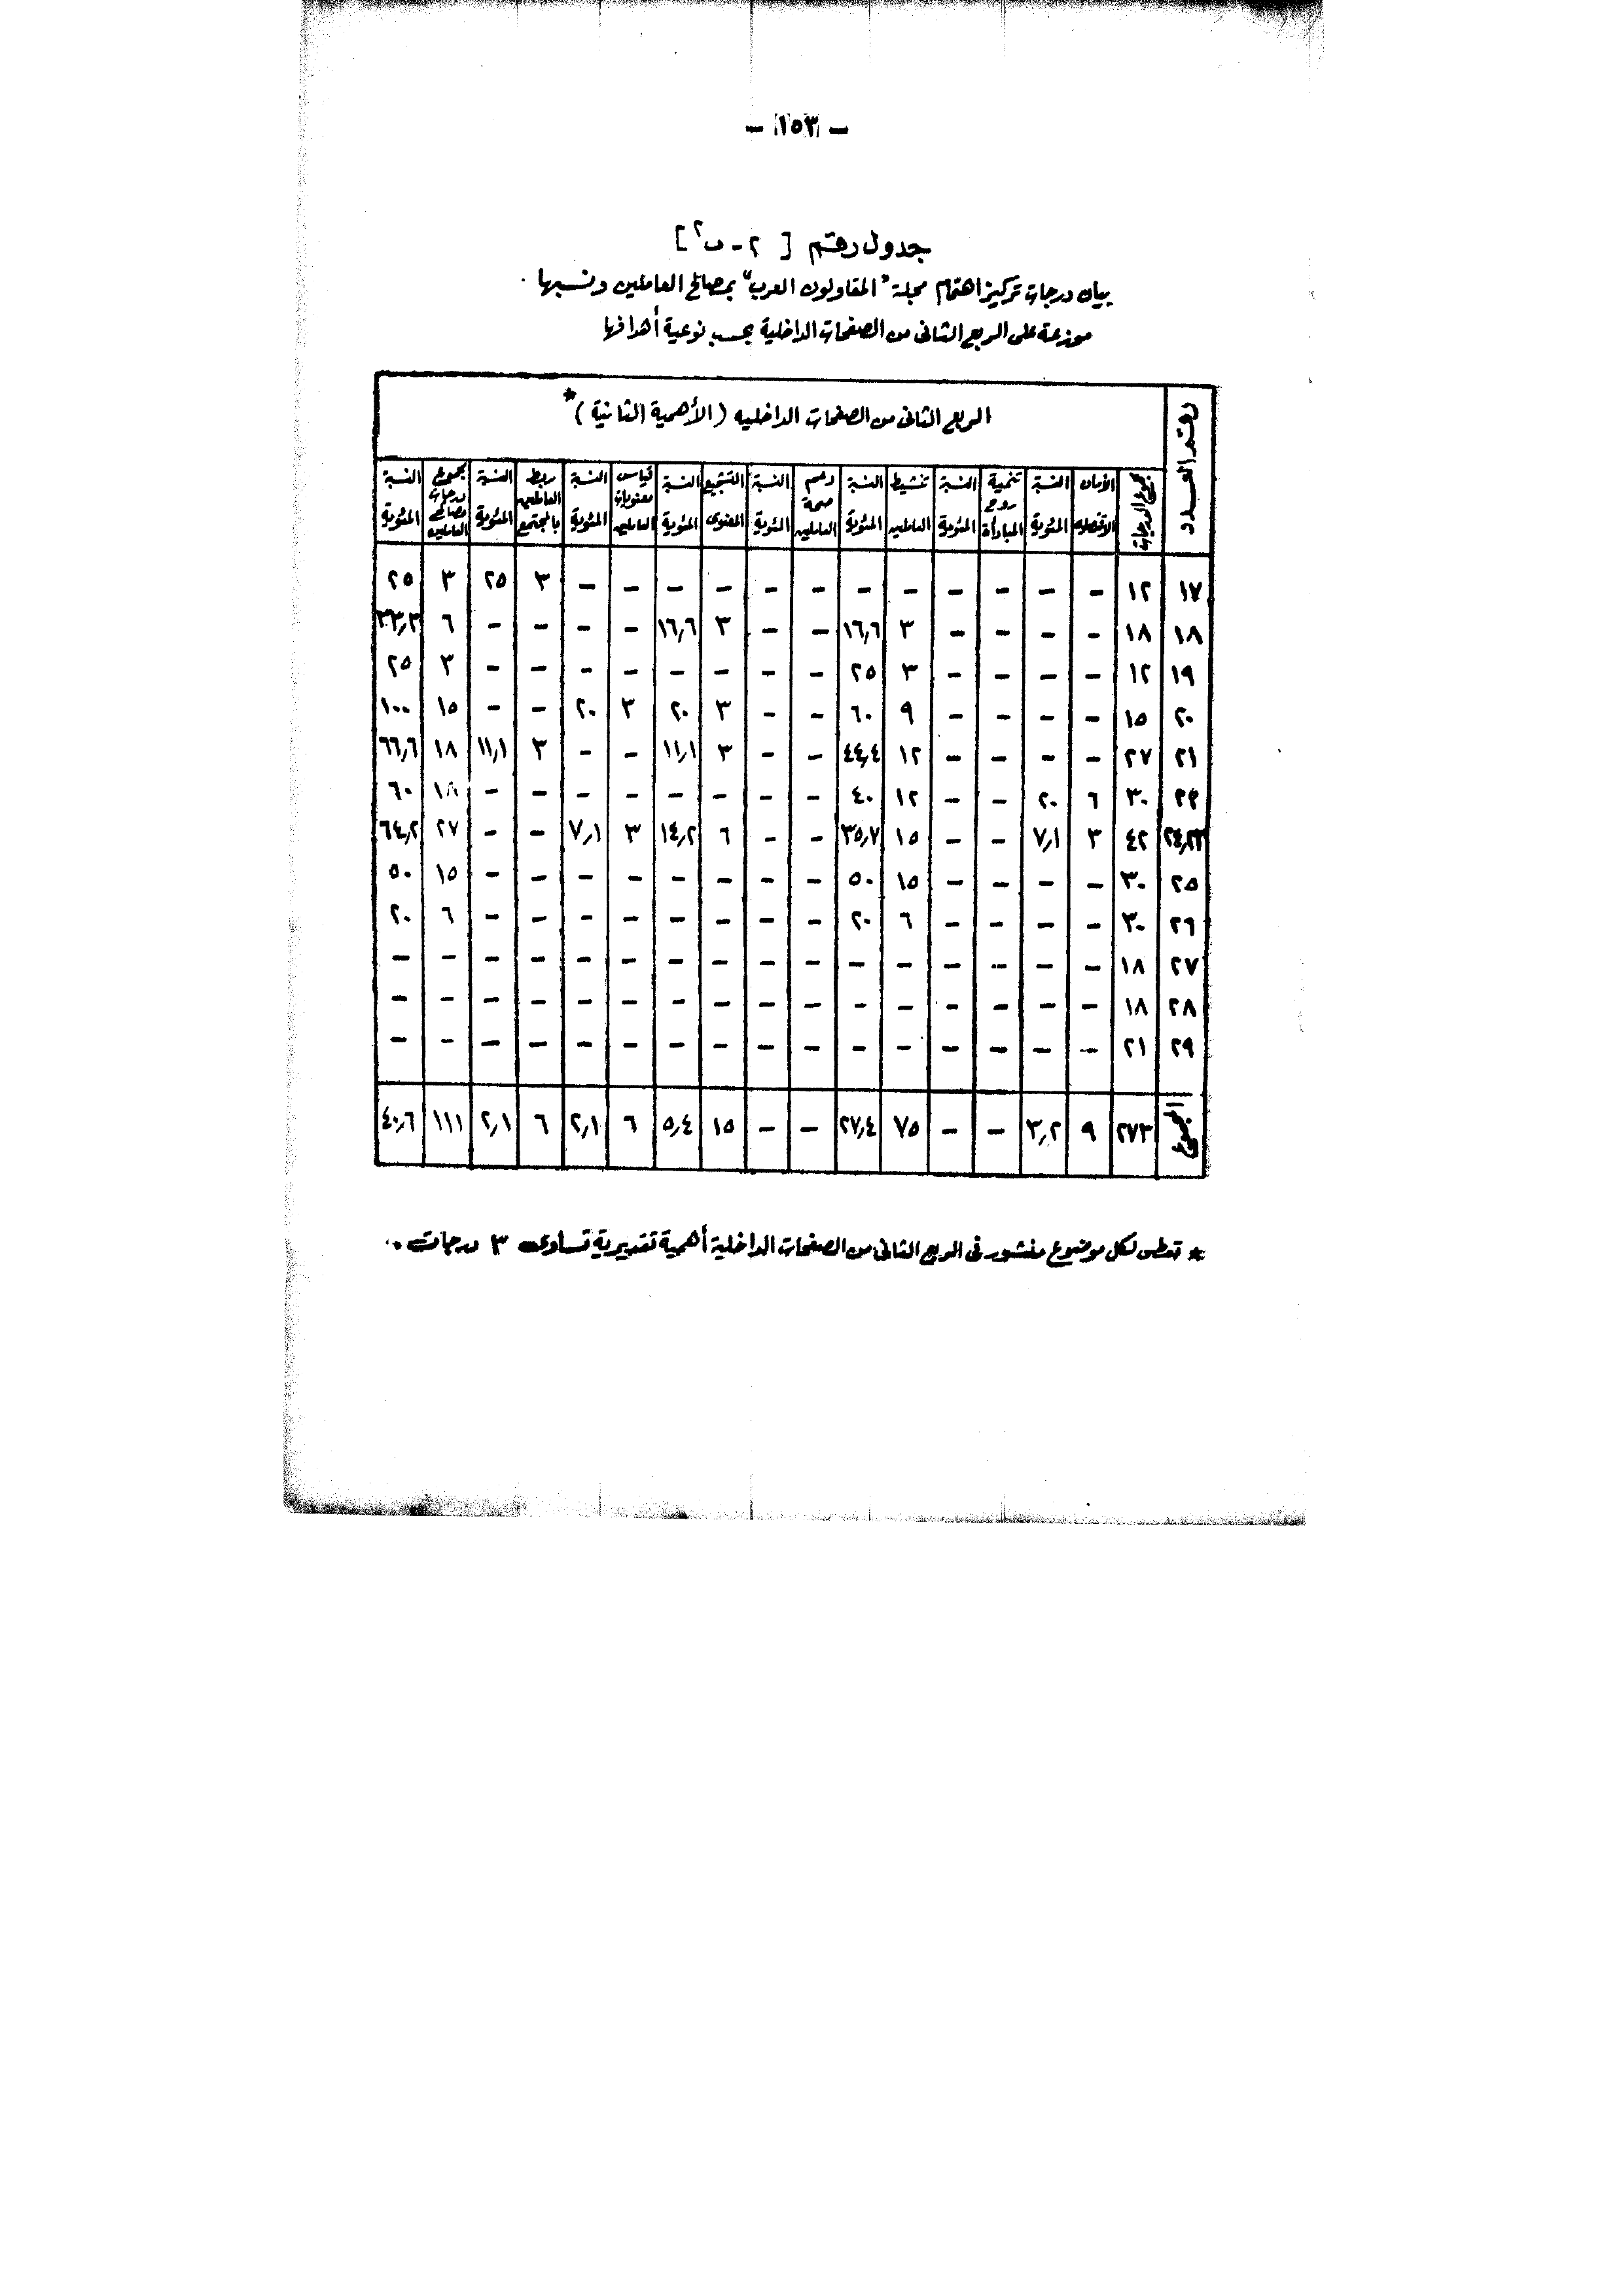 - ١٥٣ -
جدول رقم [ ٢ - ب٢ ]
بيان درجات تركيز اهتمام مجلة "المقاولون العرب" بمصالح العاملين ونسبها
موزعة على الربع الثانى من الصفحات الداخلية بحسب نوعية أهدافها
رقم العدد
الربع الثانى من الصفحات الداخليه (الأهمية الثانية)*
مجموع الدرجات | الأمان الاقتصادى | النسبة المئوية | تنمية روح المبادأة | النسبة المئوية | تنشيط العاملين | النسبة المئوية | دعم صحة العاملين | النسبة المئوية | التشجيع المعنوى | النسبة المئوية | قياس معنويات العاملين | النسبة المئوية | ربط العاملين بالمجتمع | النسبة المئوية | مجموع درجات مصالح العاملين | النسبة المئوية
١٧ | ١٢ | - | - | - | - | - | - | - | - | - | - | - | - | ٣ | ٢٥ | ٣ | ٢٥
١٨ | ١٨ | - | - | - | - | ٣ | ١٦,٦ | - | - | ٣ | ١٦,٦ | - | - | - | - | ٦ | ٣٣,٣
١٩ | ١٢ | - | - | - | - | ٣ | ٢٥ | - | - | - | - | - | - | - | - | ٣ | ٢٥
٢٠ | ١٥ | - | - | - | - | ٩ | ٦٠ | - | - | ٣ | ٢٠ | ٣ | ٢٠ | - | - | ١٥ | ١٠٠
٢١ | ٢٧ | - | - | - | - | ١٢ | ٤٤,٤ | - | - | ٣ | ١١,١ | - | - | ٣ | ١١,١ | ١٨ | ٦٦,٦
٢٢ | ٣٠ | ٦ | ٢٠ | - | - | ١٢ | ٤٠ | - | - | - | - | - | - | - | - | ١٨ | ٦٠
٢٤,٢٣ | ٤٢ | ٣ | ٧,١ | - | - | ١٥ | ٣٥,٧ | - | - | ٦ | ١٤,٢ | ٣ | ٧,١ | - | - | ٢٧ | ٦٤,٢
٢٥ | ٣٠ | - | - | - | - | ١٥ | ٥٠ | - | - | - | - | - | - | - | - | ١٥ | ٥٠
٢٦ | ٣٠ | - | - | - | - | ٦ | ٢٠ | - | - | - | - | - | - | - | - | ٦ | ٢٠
٢٧ | ١٨ | - | - | - | - | - | - | - | - | - | - | - | - | - | - | - | -
٢٨ | ١٨ | - | - | - | - | - | - | - | - | - | - | - | - | - | - | - | -
٢٩ | ٢١ | - | - | - | - | - | - | - | - | - | - | - | - | - | - | - | -
المجموع | ٢٧٣ | ٩ | ٣,٢ | - | - | ٧٥ | ٢٧,٤ | - | - | ١٥ | ٥,٤ | ٦ | ٢,١ | ٦ | ٢,١ | ١١١ | ٤٠,٦
* تعطى لكل موضوع منشور فى الربع الثانى من الصفحات الداخلية أهمية تقديرية تساوى ٣ درجات.